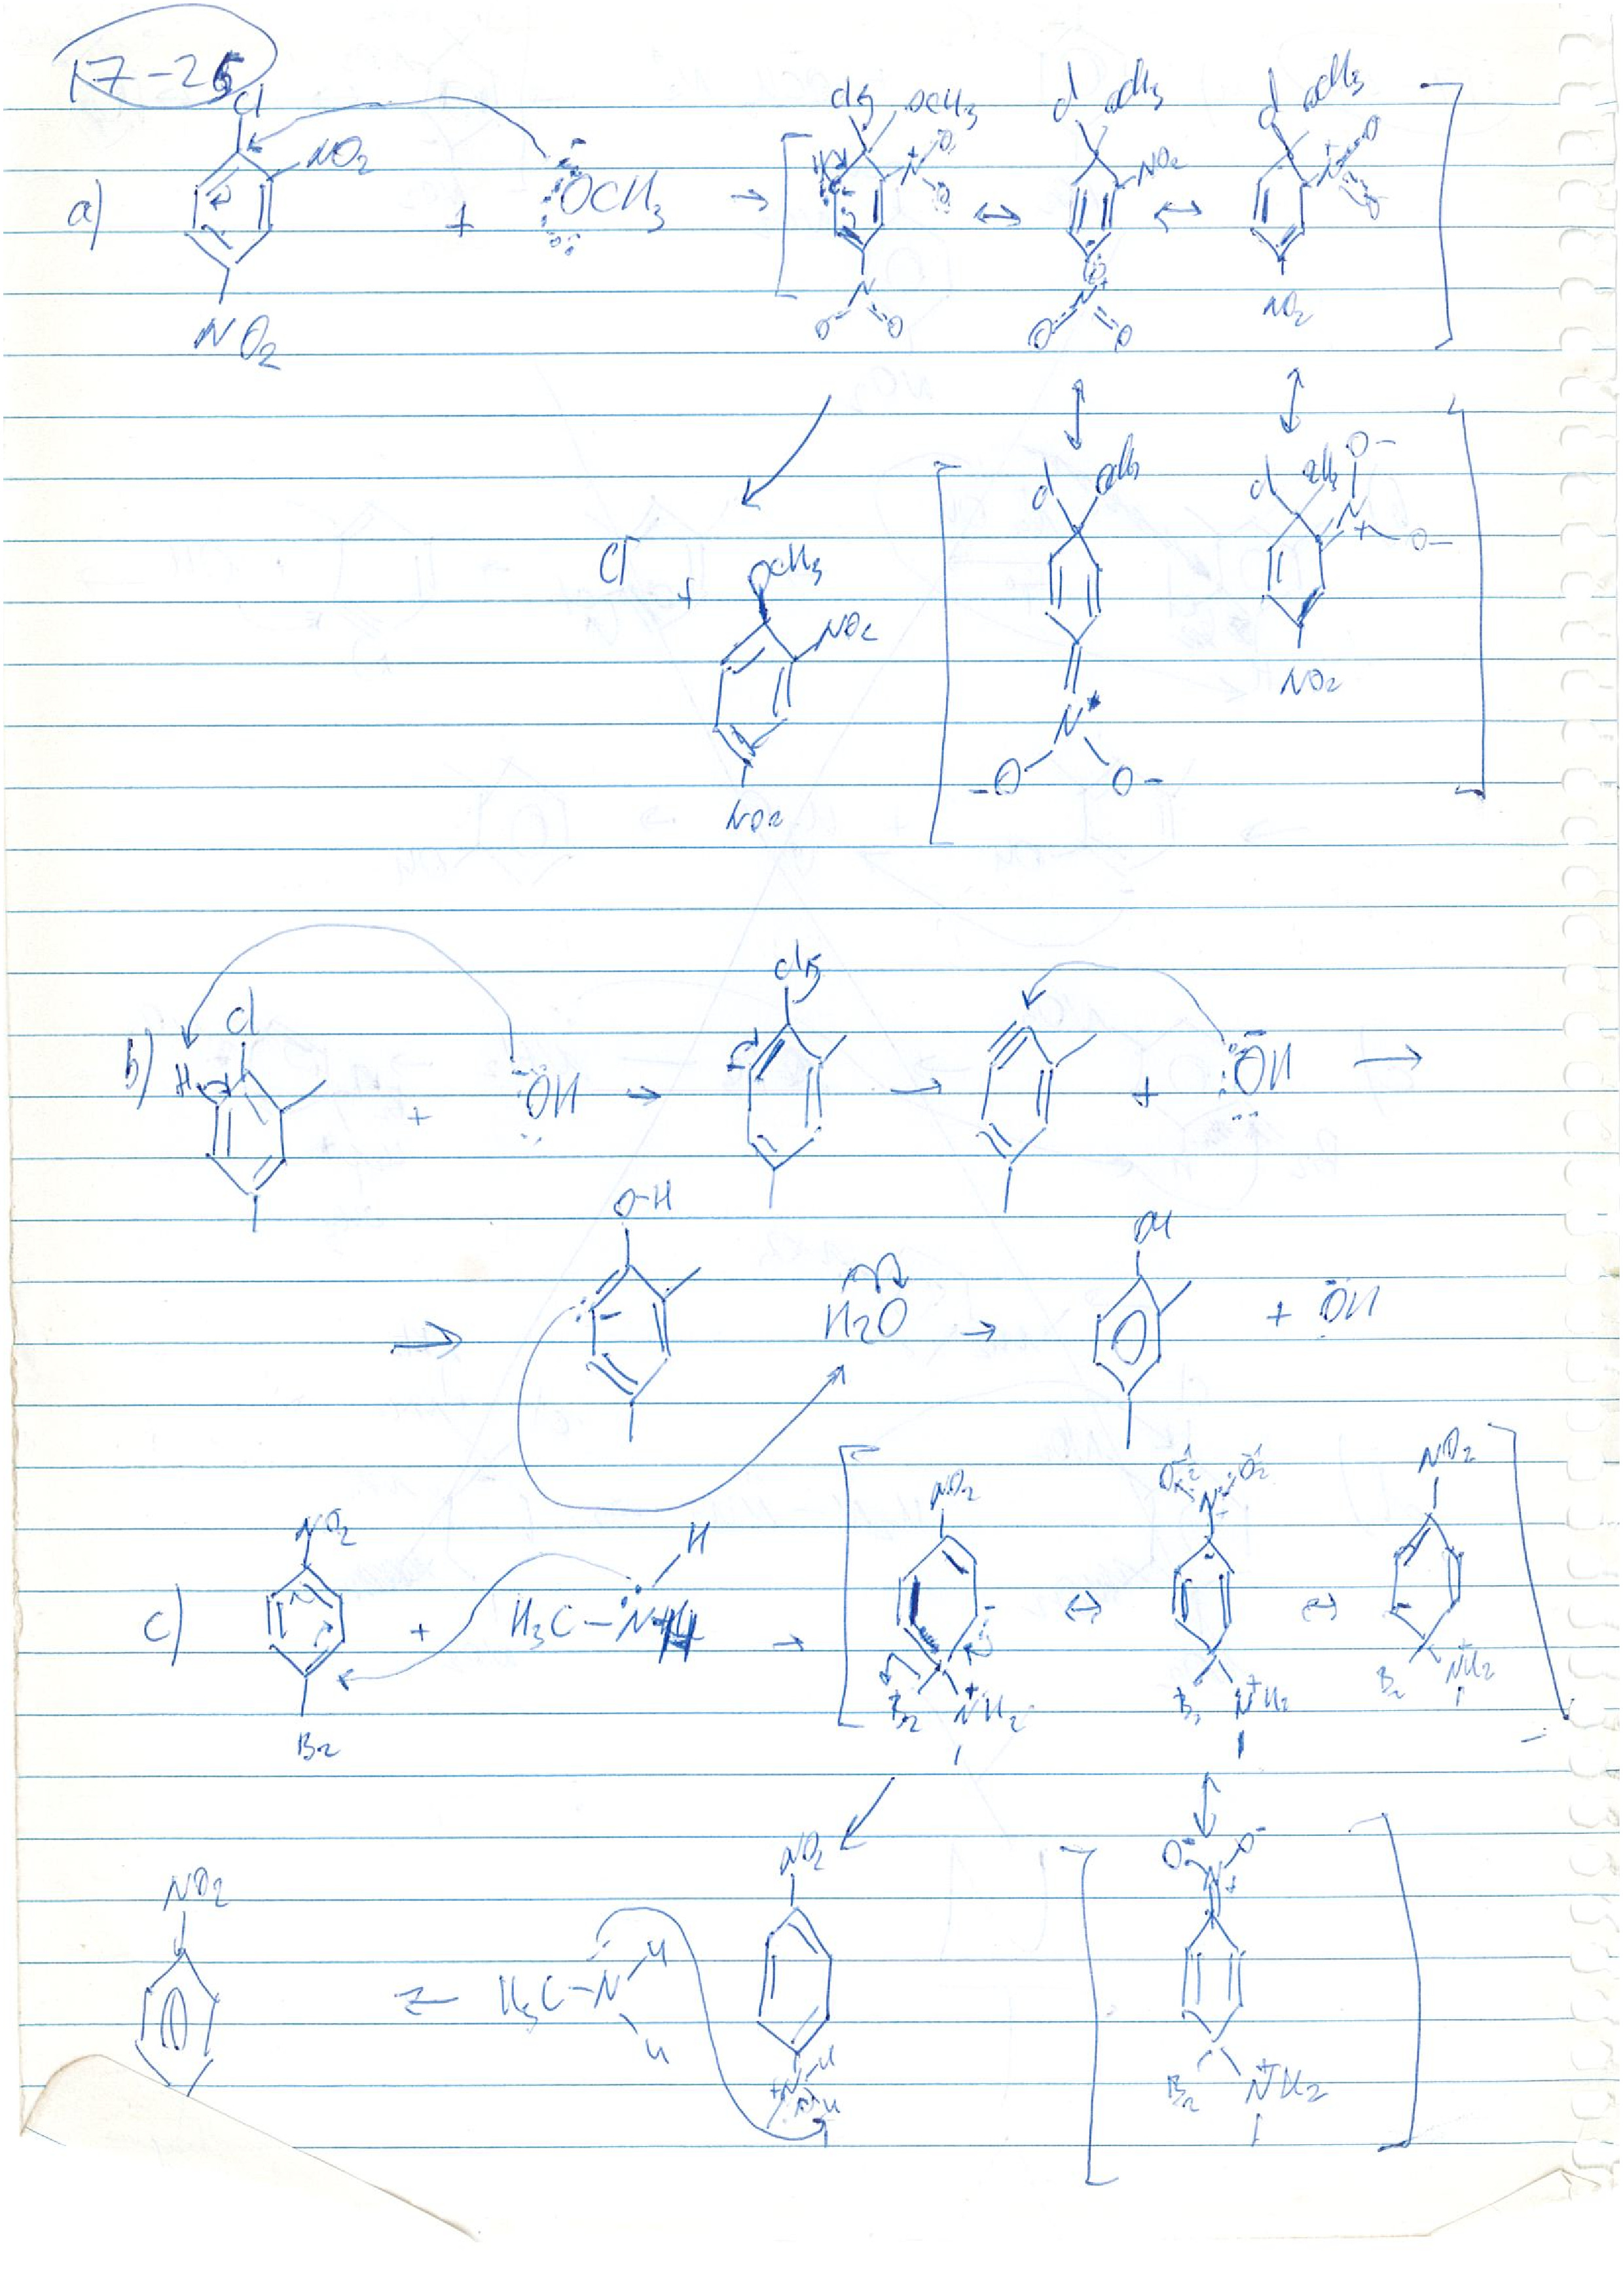 17-26
a)
Cl
NO2
NO2
+
OCH3
→
Cl OCH3
N+
O
O
N
O
O
↔
Cl OCH3
NO2
N+
O
O
↔
Cl OCH3
N+
O
O
NO2
Cl
+
OCH3
NO2
NO2
Cl OCH3
N+
-O
O-
Cl OCH3
O-
N+
O-
NO2
b)
Cl
H
+
-OH
→
Cl
→
+
-OH
→
→
O-H
-
H2O
→
OH
+ OH
c)
NO2
Br
+
H3C-N
H
→
NO2
-
Br
+
NH2
↔
N+
Br
+
NH2
↔
NO2
-
Br
+
NH2
NO2
H3C-N
H
H
NO2
+N
H
H
O-
O-
N+
Br
+
NH2